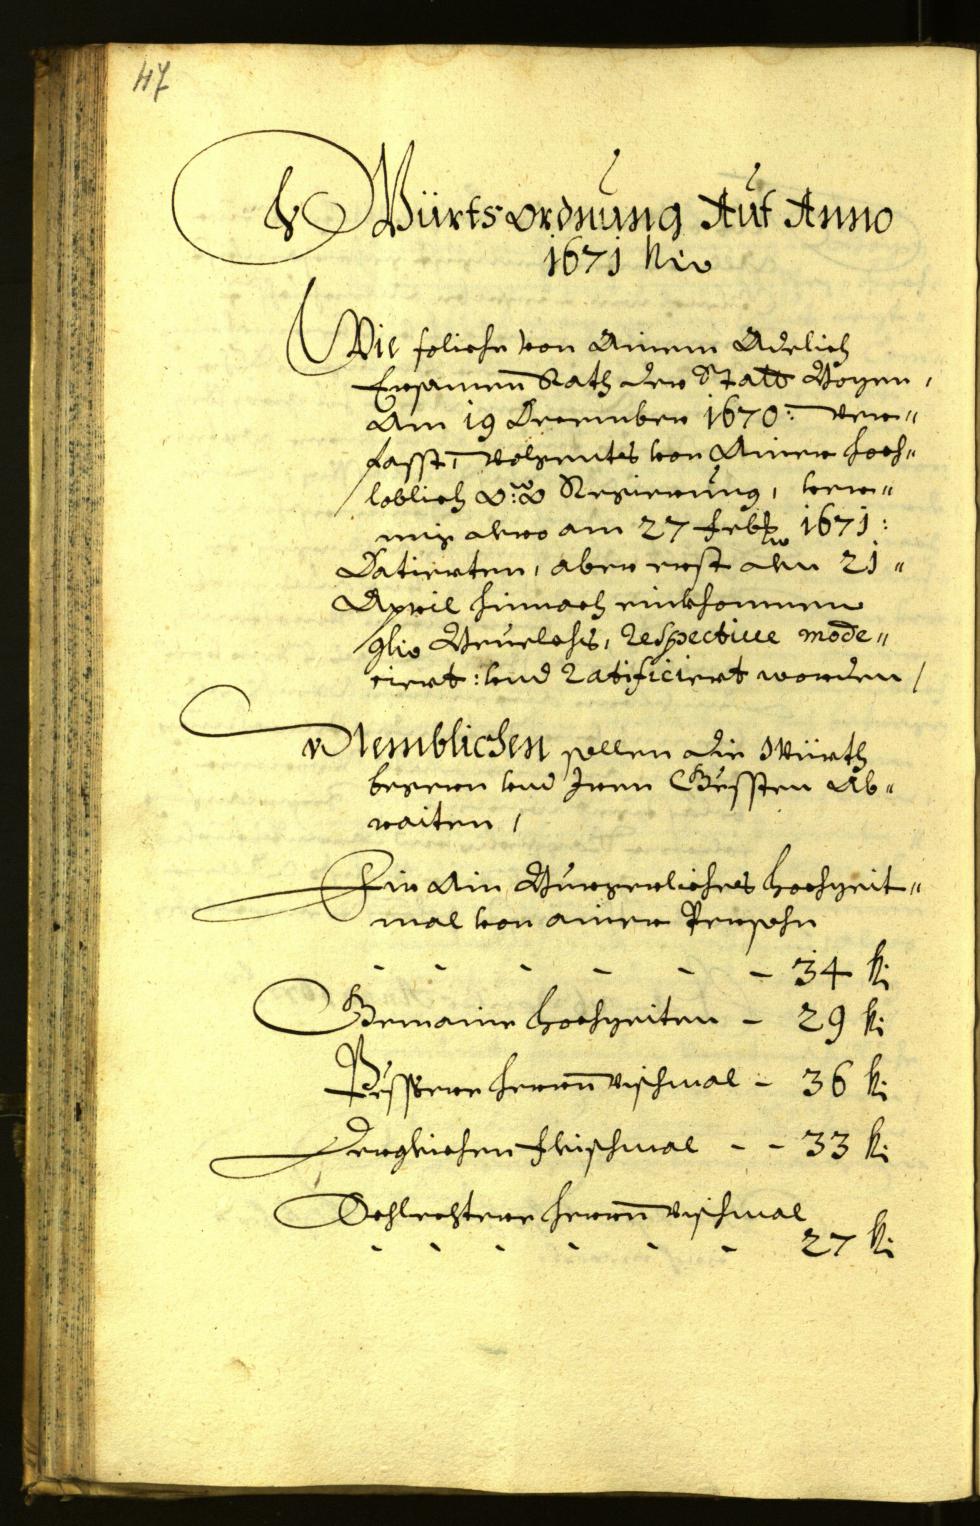 47
Würts ordnung Auf Anno
1671 Jar
Wie soliche von Ainem Adelich
Ersamen Rath der Statt Bozen,
Am 19 December 1670: ver„
fasst, volgents von Ainer hoch„
loblich O:Ö Regierung, ver„
mig dero am 27 Feb: 1671:
Datierten, aber erst den 21„
April hinnach einkhommen
Bevelchs, Respective mode„
riert: vnd Ratificiert worden /
Nemblichen sollen die Würth
begeren vnd Iren Gessten Ab„
raiten /
Für Ain Burgerliches Hochzeit„
mal von ainer Persohn
- - - - - - 34 k:
Gemaine Hochzeiten - 29 k:
Pessere herrn vischmal - 36 k:
Dergleichen fleischmal - - 33 k:
Schlechtere herrn vischmal
- - - - - - 27 k: